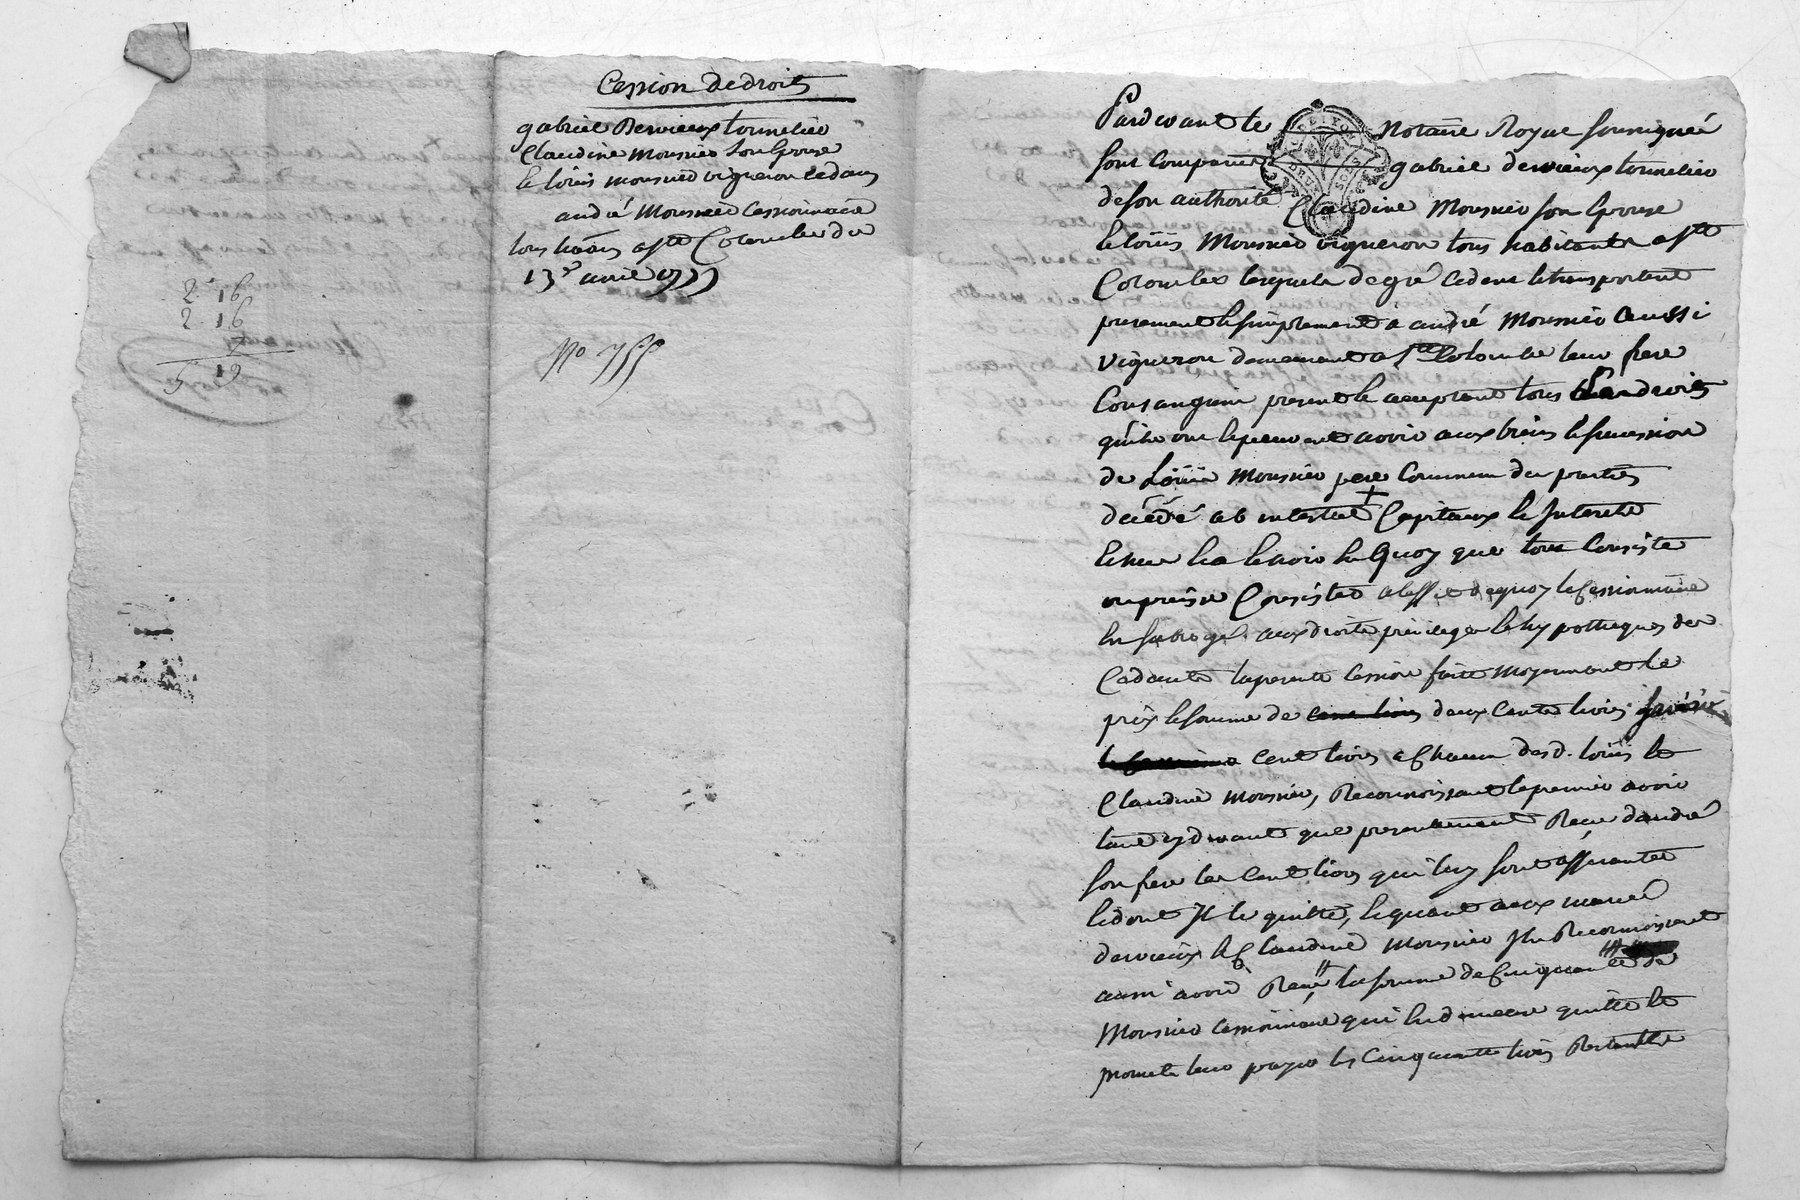 Cession de droits
gabriel Dervieux tonnelier
Claudine Mousnier son Epouse
et loüis mousnier vigneron cedans
andré Mousnier Cessionnaire
tous habitans a Ste Colombe du
13e avril 1777
No 755
2 " 16
2 " 16
7
5 19
Pardevant le Notaire Royal soussigné
sont comparus gabriel dervieux tonnelier
de son authorité Claudine Mousnier son Epouse
et loüis Mousnier vigneron tous habitants a Ste
Colombe lesquels de gré cedent et transportent
purement et simplement a andré Mousnier aussi
vigneron demeurant a Ste Colombe leur frere
Consanguin present et acceptant tous les droits
qu'ils ont et peuvent avoir aux biens et succession
de Loüis Mousnier pere Commun des parties
décédé ab intestat Capitaux et Interets
en quoy que tout Consiste
ou puisse Consister a l'effet de quoy le Cessionnaire
est subrogé aux droits privileges et hypotheques des
Cedants la presente Cession faite moyennant le
prix et somme de cent livres deux Cents livres
cent livres a Chacun desd. loüis et
Claudine Mousnier, Reconnoissant le premier avoir
tant cy devant que presentement Receu d'andré
son frere les cent livres qui luy sont afferantes
et dont Il le quitte, et quant aux mariés
dervieux et Claudine Mousnier Ils Reconnoissent
aussi avoir Receu la somme de Cinquante de
Mousnier Cessionnaire qui en demeure quitte et
promet leur payer les Cinquante livres Restantes